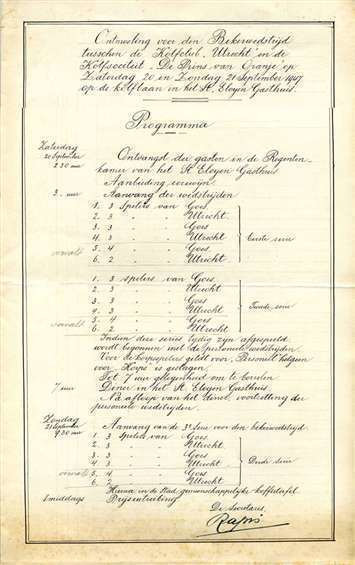 Ontmoeting voor den Bekerwedstrijd
tusschen de Kolfclub „Utrecht” en de
Kolfsociëteit „De Prins van Oranje” op
Zaterdag 20 en Zondag 21 September 1947
op de kolfbaan in het St. Eloyen Gasthuis.
Programma
Zaterdag
20 September
2.30 uur Ontvangst der gasten in de Regenten-
kamer van het St. Eloyen Gasthuis
Aanbieding eerewijn.
3.- uur Aanvang der wedstrijden
1. 3 spelers van Goes
2. 3 " " Utrecht
3. 3 " " Goes
4. 3 " " Utrecht Eerste serie
5. 4 " " Goes
6. 2 " " Utrecht.
1. 3 spelers van Goes
2. 3 " " Utrecht
3. 3 " " Goes
4. 3 " " Utrecht Tweede serie
5. 4 " " Goes
6. 2 " " Utrecht
Indien deze series tijdig zijn afgespeeld
wordt begonnen met de personeele wedstrijden.
Voor de korpsspelers geldt voor Personeel hetgeen
voor Korps is geslagen.
Tot 7 uur gelegenheid om te borrelen
7 uur Diner in het St. Eloyen Gasthuis.
Na afloop van het diner voortzetting der
personeele wedstrijden.
Zondag
21 September
9.30 uur Aanvang van de 3e serie voor den bekerwedstrijd
1. 3 spelers van Goes
2. 3 " " Utrecht.
3. 3 " " Goes
4. 3 " " Utrecht Derde serie
5. 4 " " Goes
6. 2 " " Utrecht
Hierna in de Stad gemeenschappelijke koffietafel
middags Prijsuitreiking
De Secretaris